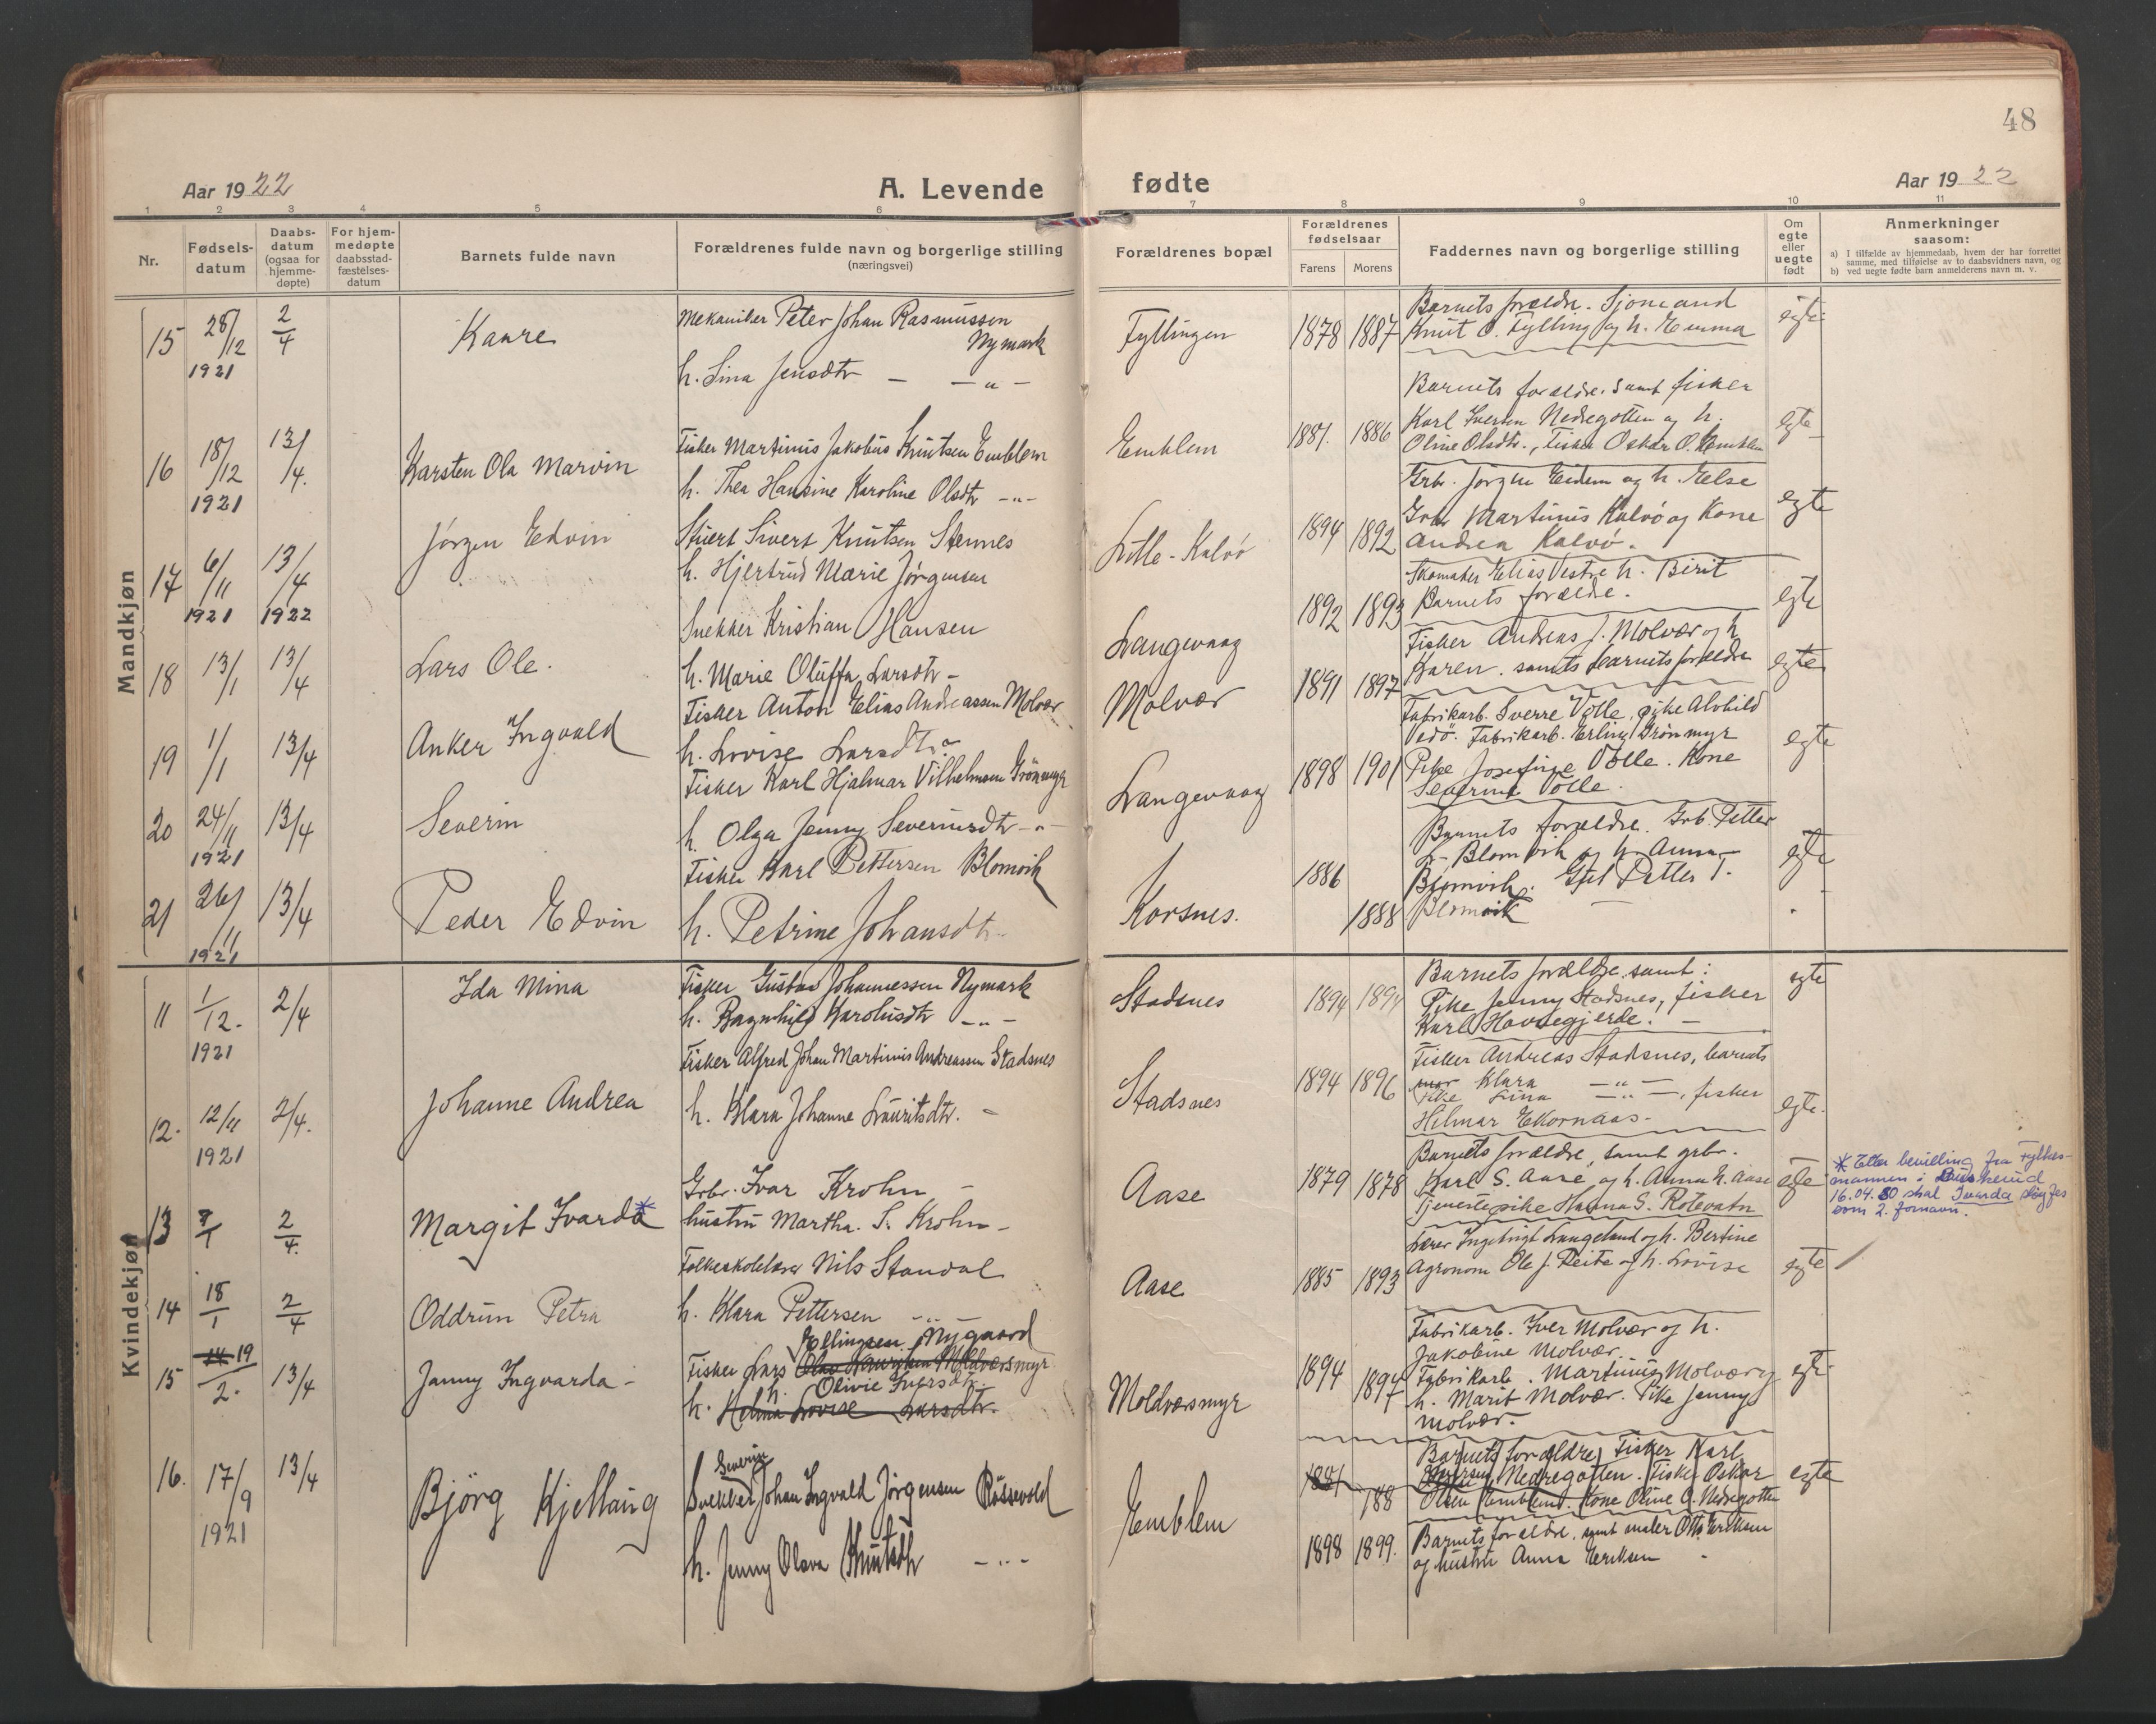 48
Aar 1922
A. Levende
fødte
Aar 1922
1 2 3 4 5 6 7 8 9 10 11
Nr.
Fødsels-
datum
Daabs-
datum
(ogsaa for
hjemme-
døpte)
For hjem-
medøpte
daabsstad-
fæstelses-
datum
Barnets fulde navn
Forældrenes fulde navn og borgerlige stilling
(næringsvei)
Forældrenes bopæl
Forældrenes
fødselsaar
Farens Morens
Faddernes navn og borgerlige stilling
Om
egte
eller
uegte
født
Anmerkninger
saasom:
a) I tilfælde av hjemmedaab, hvem der har forrettet
samme, med tilføielse av to daabsvidners navn, og
b) ved uegte fødte barn anmelderens navn m. v.
Mandkjøn
15 28/12 1921 2/4
Kaare
Mekaniker Peter Johan Rasmussen
Nymark
h. Lina Jensdtr — — " —
Fyllingen
1878 1887
Barnets forældre. Sjømand
Knut O. Fylling og h. Emma
egte
16 18/12 1921 13/4.
Karsten Ola Marvin
Fisker Martinus Jakobus Knutsen Emblem
h. Thea Hansine Karoline Olsdtr -"-
Emblem
1887. 1886
Barnets forældre. samt fisker
Karl Iversen Nedregotten og h.
Oline Olsdtr., fisker Oskar O. Emblem
egte
17 6/11 1921 13/4 1922
Jørgen Edvin
Stuert Sivert Knutsen Stennes
h. Hjertrud Marie Jørgensen
Lille-Kalvø
1894 1892
Grbr. Jørgen Eidem og h. Else
Grbr Martinus Kalvø og Kone
Andrea Kalvø.
egte
18 13/1 13/4
Lars Ole.
Snekker Kristian Hansen
h. Marie Oluffa Larsdtr -
Langevaag
1892 1893
Skomaker Elias Vestre h. Berit
Barnets forældre.
egte
19 1/1 13/4
Anker Ingvald
Fisker Anton Elias Andreassen Molvær
h. Lovise Larsdtr
Molvær
1891 1897
Fisker Andreas J. Molvær og h
Karen. samts barnets forældre
egte
20 24/11 1921 13/4
Severin
Fisker Karl Hjalmar Vilhelmsen Grönmyr
h. Olga Jenny Severinsdtr -"-
Langevaag
1898 1901
Fabrikarb. Sverre Völle, pike Alvhild
Vedö. Fabrikarb. Erling Grönmyr
Pike Josefine Völle. Kone
Severine Völle.
egte
21 26/11 1921 13/4
Peder Edvin
Fisker Karl Pettersen Blomvik
h. Petrine Johansdtr.
Korsnes.
1886 1888
Barnets forældre. Grb. Petter
Blomvik og h Anna
Blomvik. Petter T.
Blomvik
egte
Kvindekjøn
11 1/12. 1921 2/4
Ida Mina
Fisker Gustav Johannessen Nymark
h. Ragnhild Karolusdtr -"-
Stadsnes
1894 1894
Barnets forældre samt:
Pike Jenny Stadsnes, fisker
Karl Hovsegjerde! —
egte
12. 12/11 1921 2/4.
Johanne Andrea
Fisker Alfred Johan Martinus Andreassen Stadsnes
h. Klara Johanne Lauritsdtr. -
Stadsnes
1894 1896
Fisker Andreas Stadsnes, barnets
mor Klara —"—
Pike Lina —"—, fisker
Hilmar Ekornaas -
egte.
13 7/1 2/4.
Margit Ivarda*
Grbr. Ivar Krohn -
hustru Martha. S. Krohn -
Aase
1879 1878
Barnets forældre, samt grbr.
Karl S. Aase, og h. Anna N. Aase
Tjenestepike Hanna S. Rotevatn
egte
* Etter bevilling fra Fylkes-
mannen i Buskerud
16.04.80 skal Ivarda sløyfes
som 2. fornavn.
14 18/1 2/4
Oddrun Petra
Folkeskolelærer Nils Standal
h. Klara Pettersen -"-
Aase
1885 1893
Lærer Ingebrigt Langeland og h. Bertine
Agronom Ole J. Reite og h. Lovise
egte
15 14 19/2. 13/4
Janny Ingvarda -
Ellingsen Nygaard
Fisker Lars Moldværsmyr
h. Olivie Iversdtr.
h. Lovise Larsdtr.
Moldværsmyr
1894 1897
Fabrikarb. Iver Molvær og h.
Jakobine Molvær.
Fabrikarb. Martinus Molvær og
h. Marit Molvær. Pike Jenny
Molvær.
egte
16. 17/9 1921 13/4
Bjørg Kjellaug
Severin
Snekker Johan Ingvald Jørgensen Røssevold
h. Jenny Olava Knutsdtr -"-
Emblem
1881 188
1898 1899.
Barnets forældre, Fisker Karl
Iversen Nedregotten. Fisker Oskar
Olsen Emblem. Kone Oline O. Nedregotten
Barnets forældre, samt maler Otto Eriksen
og hustru Anna Eriksen
egte